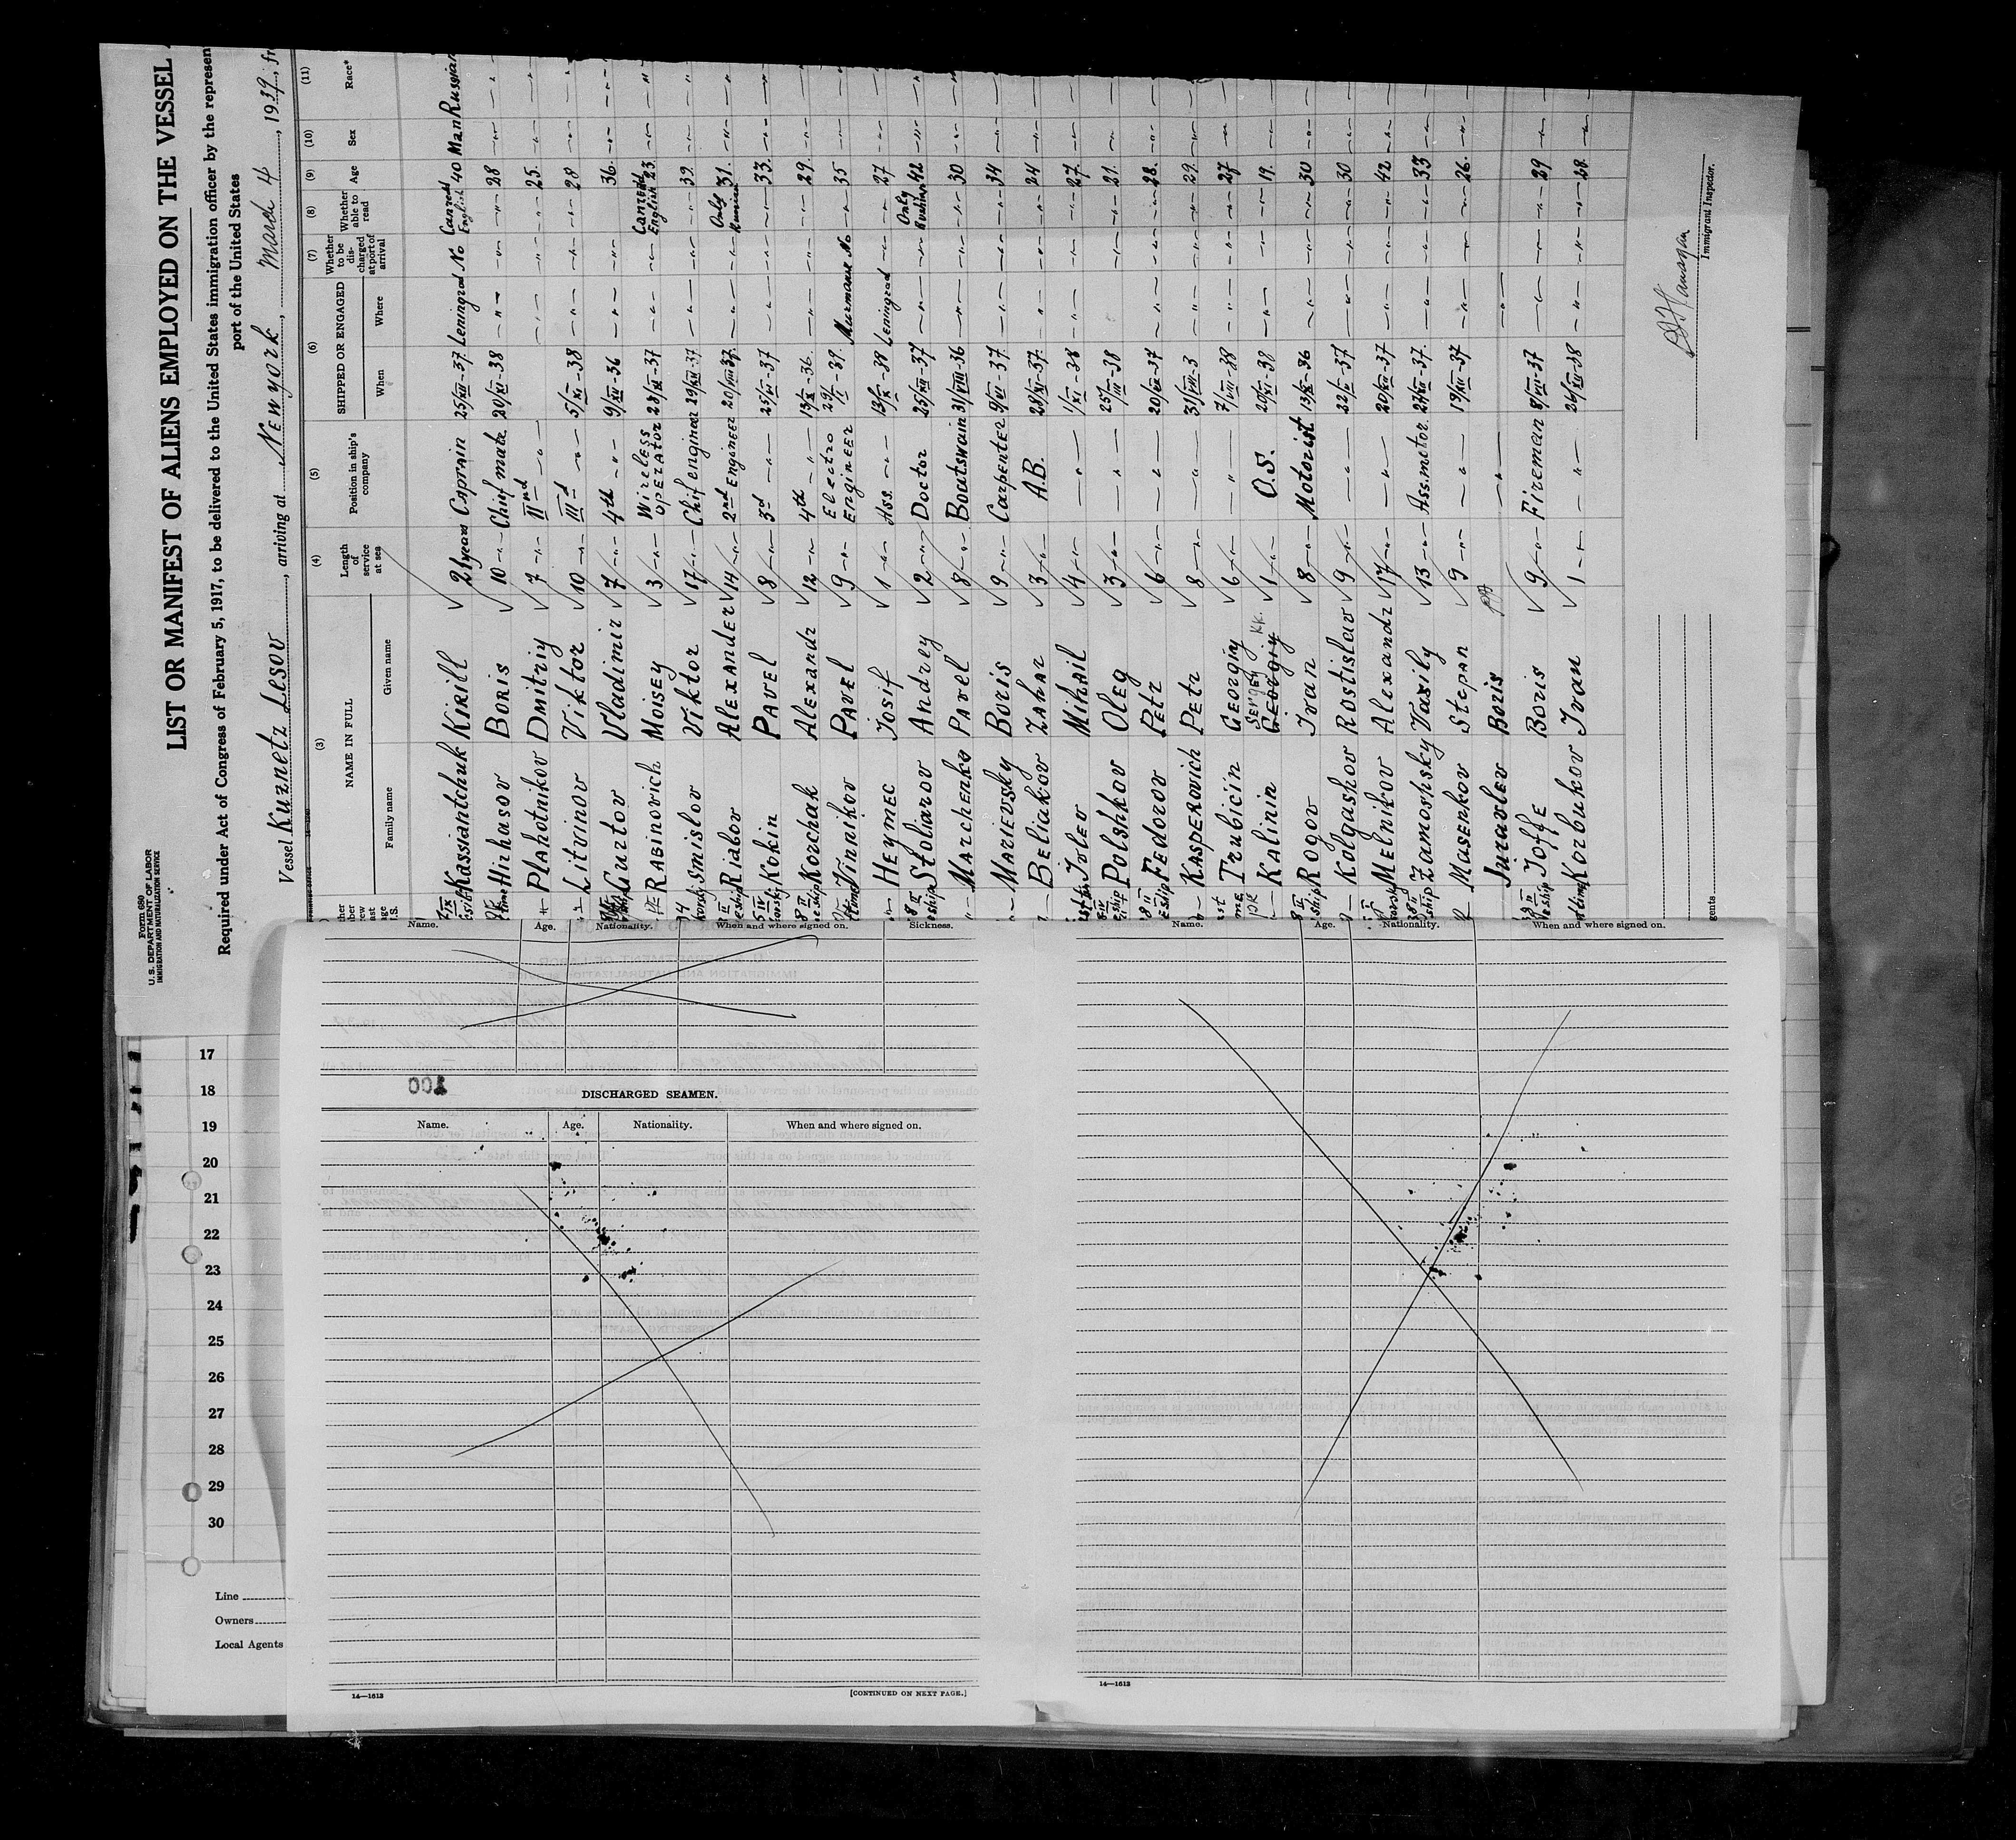 Form 680
U. S. DEPARTMENT OF LABOR
IMMIGRATION AND NATURALIZATION SERVICE
LIST OR MANIFEST OF ALIENS EMPLOYED ON THE VESSEL
Required under Act of Congress of February 5, 1917, to be delivered to the United States immigration officer by the represen
port of the United States
Vessel Kuznetz Lesov, arriving at Newyork, March 4, 1939, fr
(3) (4) (5) (6) (7) (8) (9) (10) (11)
NAME IN FULL Length of service at sea Position in ship's company SHIPPED OR ENGAGED Whether to be discharged at port of arrival Whether able to read Age Sex Race*
Family name Given name When Where
Kassiantchuk Kirill 21 years Captain 25/XII-37 Leningrad No Can read English 40 Man Russian
Hirhasov Boris 10 -"- Chief mate 20/XI-38 -"- -"- -"- 28 -"- -"-
Plahotnikov Dmitriy 7 -"- IInd -"- -"- -"- -"- 25 -"- -"-
Litvinov Viktor 10 -"- IIId -"- 5/XI-38 -"- -"- -"- 28 -"- -"-
Gurtov Vladimir 7 -"- 4th -"- 9/XII-36 -"- -"- -"- 36 -"- -"-
Rabinovich Moisey 3 -"- Wireless operator 23/XI-37 -"- -"- Can read English 23 -"- -"-
Smislov Viktor 17 -"- Chif engineer 29/XII-37 -"- -"- -"- 39 -"- -"-
Riabov Alexander 14 -"- 2nd Engineer 20/VIII-37 -"- -"- Only Russian 31 -"- -"-
Kokin Pavel 8 -"- 3d -"- 25/VI-37 -"- -"- -"- 33 -"- -"-
Korchak Alexandr 12 -"- 4th -"- 13/X-36 -"- -"- -"- 29 -"- -"-
Vinnikov Pavel 9 -"- Electro Engineer 29/I-39 Murmansk No -"- 35 -"- -"-
Heymec Iosif 1 -"- Ass. -"- 13/X-38 Leningrad -"- -"- 27 -"- -"-
Stoliarov Andrey 2 -"- Doctor 25/XII-37 -"- -"- Only Russian 42 -"- -"-
Marchenko Pavel 8 -"- Boatswain 31/VIII-36 -"- -"- -"- 30 -"- -"-
Marievsky Boris 9 -"- Carpenter 9/VI-37 -"- -"- -"- 34 -"- -"-
Beliakov Zahar 3 -"- A.B. 28/XI-37 -"- -"- -"- 24 -"- -"-
Iolev Mihail 4 -"- -"- 1/XI-38 -"- -"- -"- 27 -"- -"-
Polshkov Oleg 3 -"- -"- 25/III-38 -"- -"- 21 -"- -"-
Fedorov Petr 6 -"- -"- 20/IX-37 -"- -"- -"- 28 -"- -"-
Kasperovich Petr 8 -"- -"- 31/VIII-3 -"- -"- -"- 29 -"- -"-
Trubicin Georgiy 6 -"- -"- 7/VII-38 -"- -"- -"- 27 -"- -"-
Kalinin Sergey Georgiy K.K. 1 -"- O.S. 20/XI-38 -"- -"- 19 -"- -"-
Rogov Ivan 8 -"- Motorist 13/IX-36 -"- -"- -"- 30 -"- -"-
Kolgashov Rostislav 9 -"- -"- 22/V-37 -"- -"- -"- 30 -"- -"-
Melnikov Alexandr 17 -"- -"- 20/XII-37 -"- -"- -"- 42 -"- -"-
Zamoshsky Vasily 13 -"- Ass.motor. 27/XII-37 -"- -"- -"- 33 -"- -"-
Masenkov Stepan 9 -"- -"- 19/III-37 -"- -"- -"- 26 -"- -"-
Juravlev Boris -"- -"-
Ioffe Boris 9 -"- Fireman 8/VII-37 -"- -"- -"- 29 -"- -"-
Korbukov Ivan 1 -"- -"- 26/XII-38 -"- -"- -"- 28 -"- -"-
Immigrant Inspector.
Name. Age. Nationality. When and where signed on. Sickness.
200
DISCHARGED SEAMEN.
Name. Age. Nationality. When and where signed on.
14—1613 [CONTINUED ON NEXT PAGE.]
Name. Age. Nationality. When and where signed on.
14—1613
17
18
19
20
21
22
23
24
25
26
27
28
29
30
Line
Owners
Local Agents